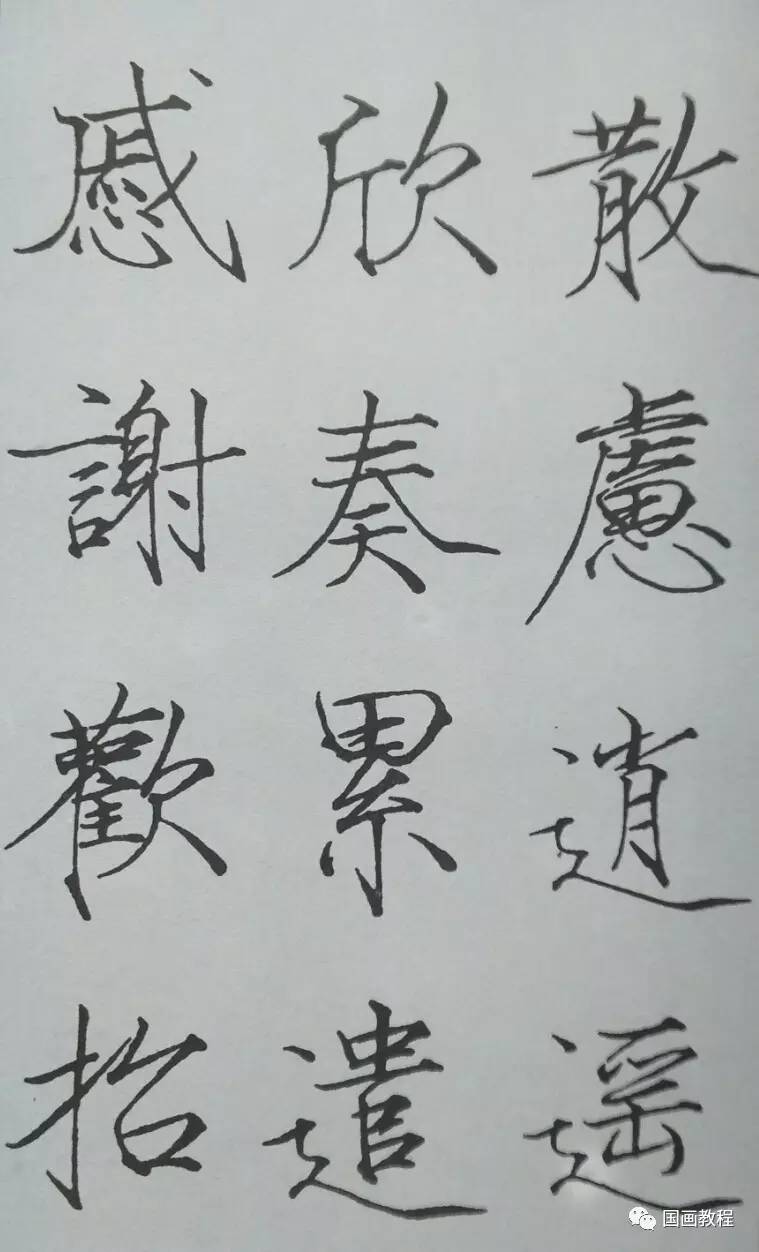 散慮逍遙
欣奏累遣
慼謝歡招
国画教程